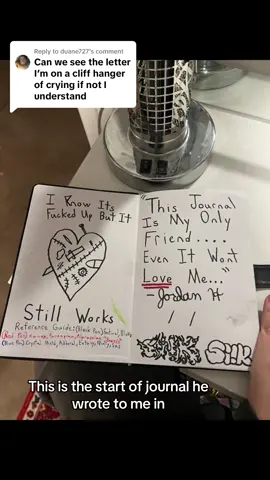 Reply to duane727's comment
Can we see the letter
I'm on a cliff hanger
of crying if not I
understand
I Know Its
Fucked Up But It
Still Works
Reference Guide:(Black Pen)
"This Journal
Is My Only
Friend....
Even It Wont
Love Me..."
-Jordan H
/ /
This is the start of journal he
wrote to me in